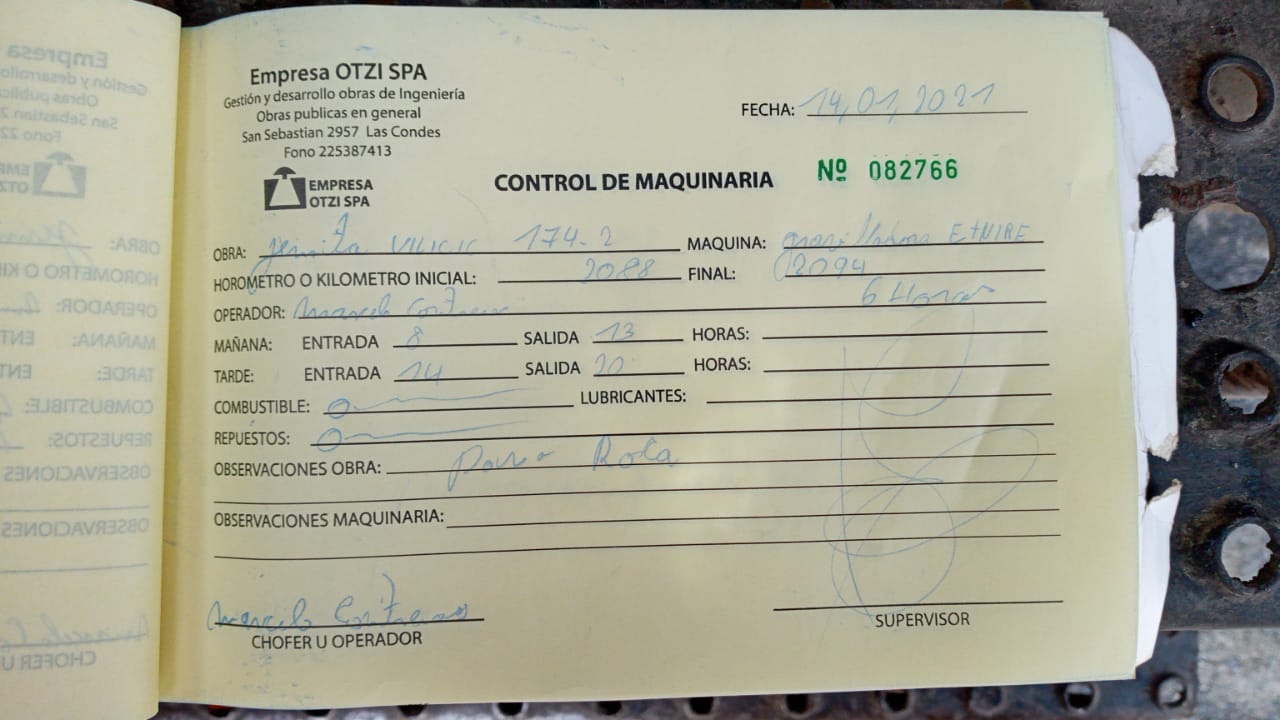 Empresa OTZI SPA
Gestión y desarrollo obras de Ingeniería
Obras publicas en general
San Sebastian 2957 Las Condes
Fono 225387413
EMPRESA
OTZI SPA
FECHA: 14,01,2021
CONTROL DE MAQUINARIA Nº 082766
OBRA: 174-2 MAQUINA:
HOROMETRO O KILOMETRO INICIAL: 2088 FINAL: 2094
6 Horas
OPERADOR: Marcelo Contreras
MAÑANA: ENTRADA 8 SALIDA 13 HORAS:
TARDE: ENTRADA 14 SALIDA 20 HORAS:
COMBUSTIBLE: LUBRICANTES:
REPUESTOS:
OBSERVACIONES OBRA:
OBSERVACIONES MAQUINARIA:
Marcelo Contreras
CHOFER U OPERADOR SUPERVISOR